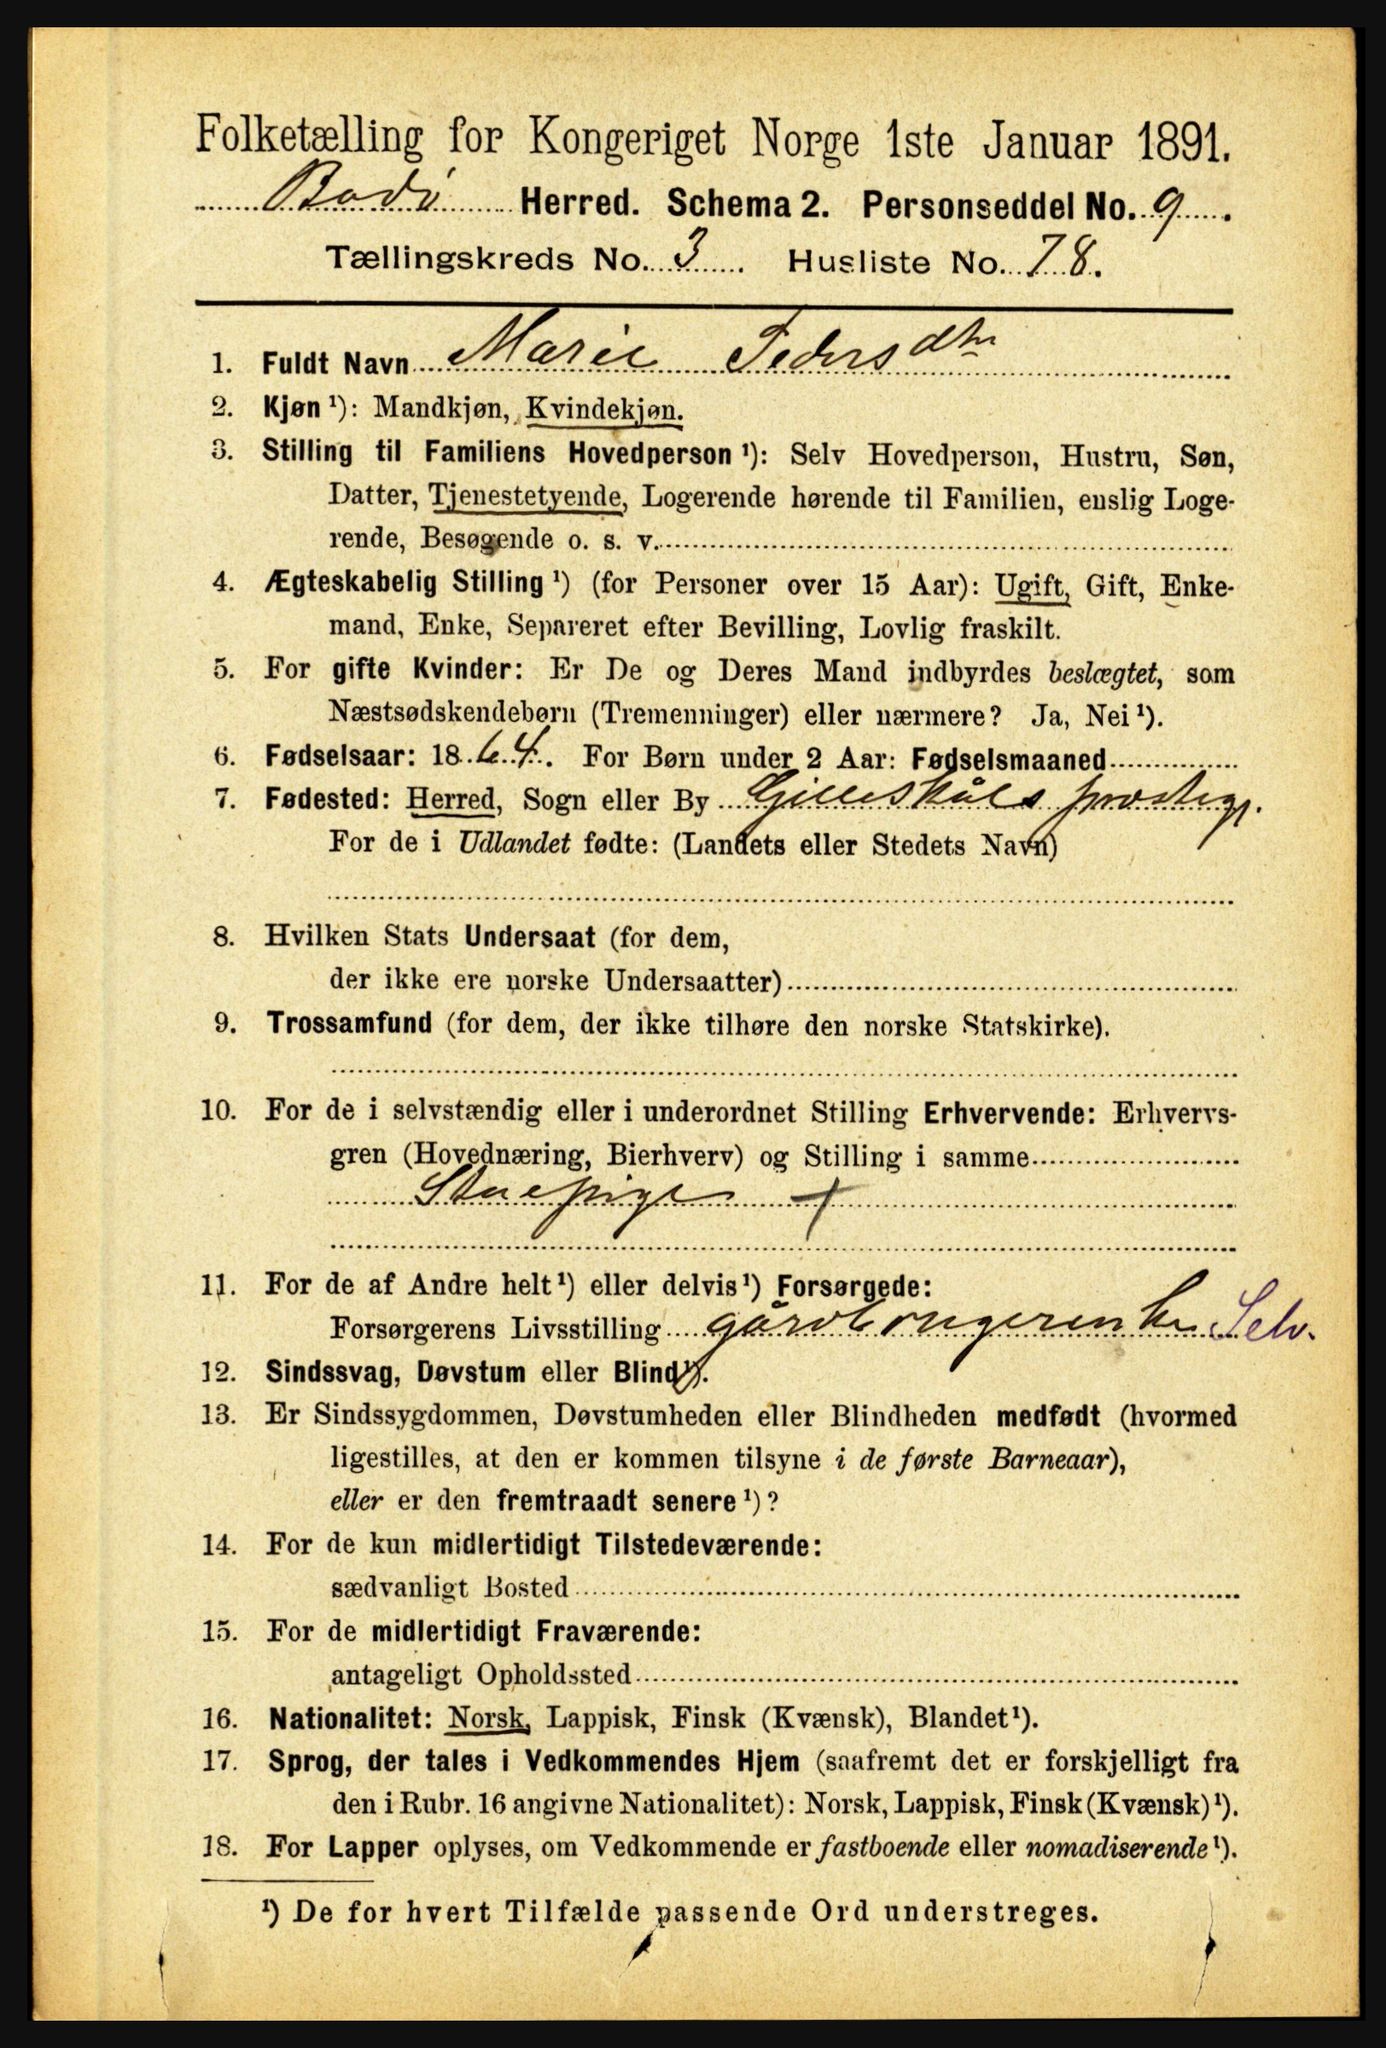 Folketælling for Kongeriget Norge 1ste Januar 1891.
Bodø Herred. Schema 2. Personseddel No. 9.
Tællingskreds No. 3. Husliste No. 78.
1. Fuldt Navn Marie Pedersdtr
2. Kjøn ¹): Mandkjøn, Kvindekjøn.
3. Stilling til Familiens Hovedperson ¹): Selv Hovedperson, Hustru, Søn,
Datter, Tjenestetyende, Logerende hørende til Familien, enslig Loge-
rende, Besøgende o. s. v.
4. Ægteskabelig Stilling ¹) (for Personer over 15 Aar): Ugift, Gift, Enke-
mand, Enke, Separeret efter Bevilling, Lovlig fraskilt.
5. For gifte Kvinder: Er De og Deres Mand indbyrdes beslægtet, som
Næstsødskendebørn (Tremenninger) eller nærmere? Ja, Nei ¹).
6. Fødselsaar: 1864. For Børn under 2 Aar: Fødselsmaaned
7. Fødested: Herred, Sogn eller By Gilleskåls præstegj.
For de i Udlandet fødte: (Landets eller Stedets Navn)
8. Hvilken Stats Undersaat (for dem,
der ikke ere norske Undersaatter)
9. Trossamfund (for dem, der ikke tilhøre den norske Statskirke).
10. For de i selvstændig eller i underordnet Stilling Erhvervende: Erhvervs-
gren (Hovednæring, Bierhverv) og Stilling i samme
Stuepige +
11. For de af Andre helt ¹) eller delvis ¹) Forsørgede:
Forsørgerens Livsstilling gårdbrugerenke Selv.
12. Sindssvag, Døvstum eller Blind ¹).
13. Er Sindssygdommen, Døvstumheden eller Blindheden medfødt (hvormed
ligestilles, at den er kommen tilsyne i de første Barneaar),
eller er den fremtraadt senere ¹)?
14. For de kun midlertidigt Tilstedeværende:
sædvanligt Bosted
15. For de midlertidigt Fraværende:
antageligt Opholdssted
16. Nationalitet: Norsk, Lappisk, Finsk (Kvænsk), Blandet ¹).
17. Sprog, der tales i Vedkommendes Hjem (saafremt det er forskjelligt fra
den i Rubr. 16 angivne Nationalitet): Norsk, Lappisk, Finsk (Kvænsk) ¹).
18. For Lapper oplyses, om Vedkommende er fastboende eller nomadiserende ¹).
¹) De for hvert Tilfælde passende Ord understreges.